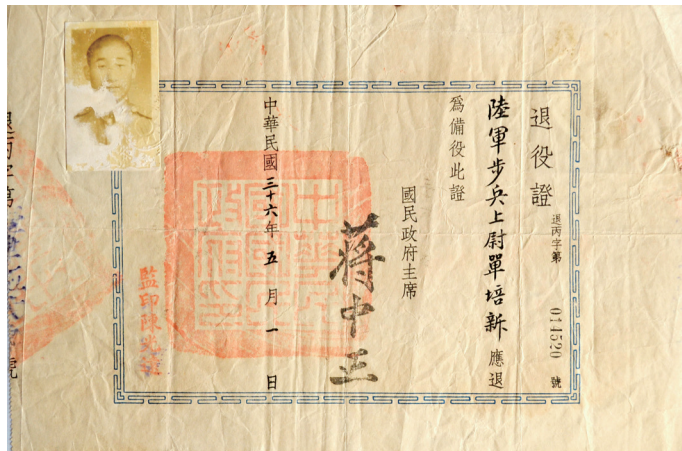 退役證
退丙字第 014590 號
陸軍步兵上尉單培新應退
爲備役此證
國民政府主席
蔣中正
中華民國三十六年五月一日
監印陳
退丙字第
號